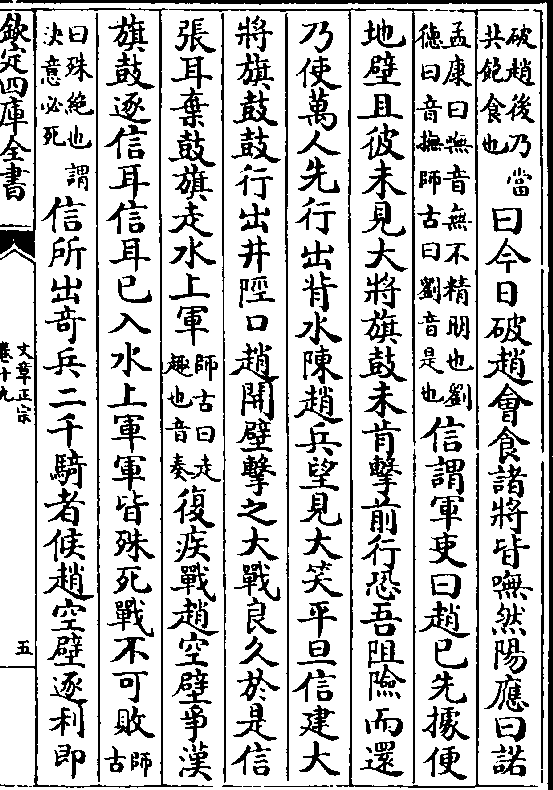 破趙後乃當
共飽食也
曰今日破趙會食諸將皆嘸然陽應曰諾
孟康曰無音無不精明也劉
德曰音撫師古曰劉音是也
信謂軍吏曰趙已先據便
地壁且彼未見大將旗鼓未肯擊前行恐吾阻險而還
乃使萬人先行出背水陳趙兵望見大笑平旦信建大
將旗鼓鼓行出井陘口趙開壁擊之大戰良久於是信
張耳棄鼓旗走水上軍
師古曰走
趣也音奏
復疾戰趙空壁爭漢
旗鼓逐信耳信耳已入水上軍軍皆殊死戰不可敗
師
古
曰殊絶也謂
決意必死
信所出奇兵二千騎者候趙空壁逐利即
欽定四庫全書
文章正宗
卷十九
五